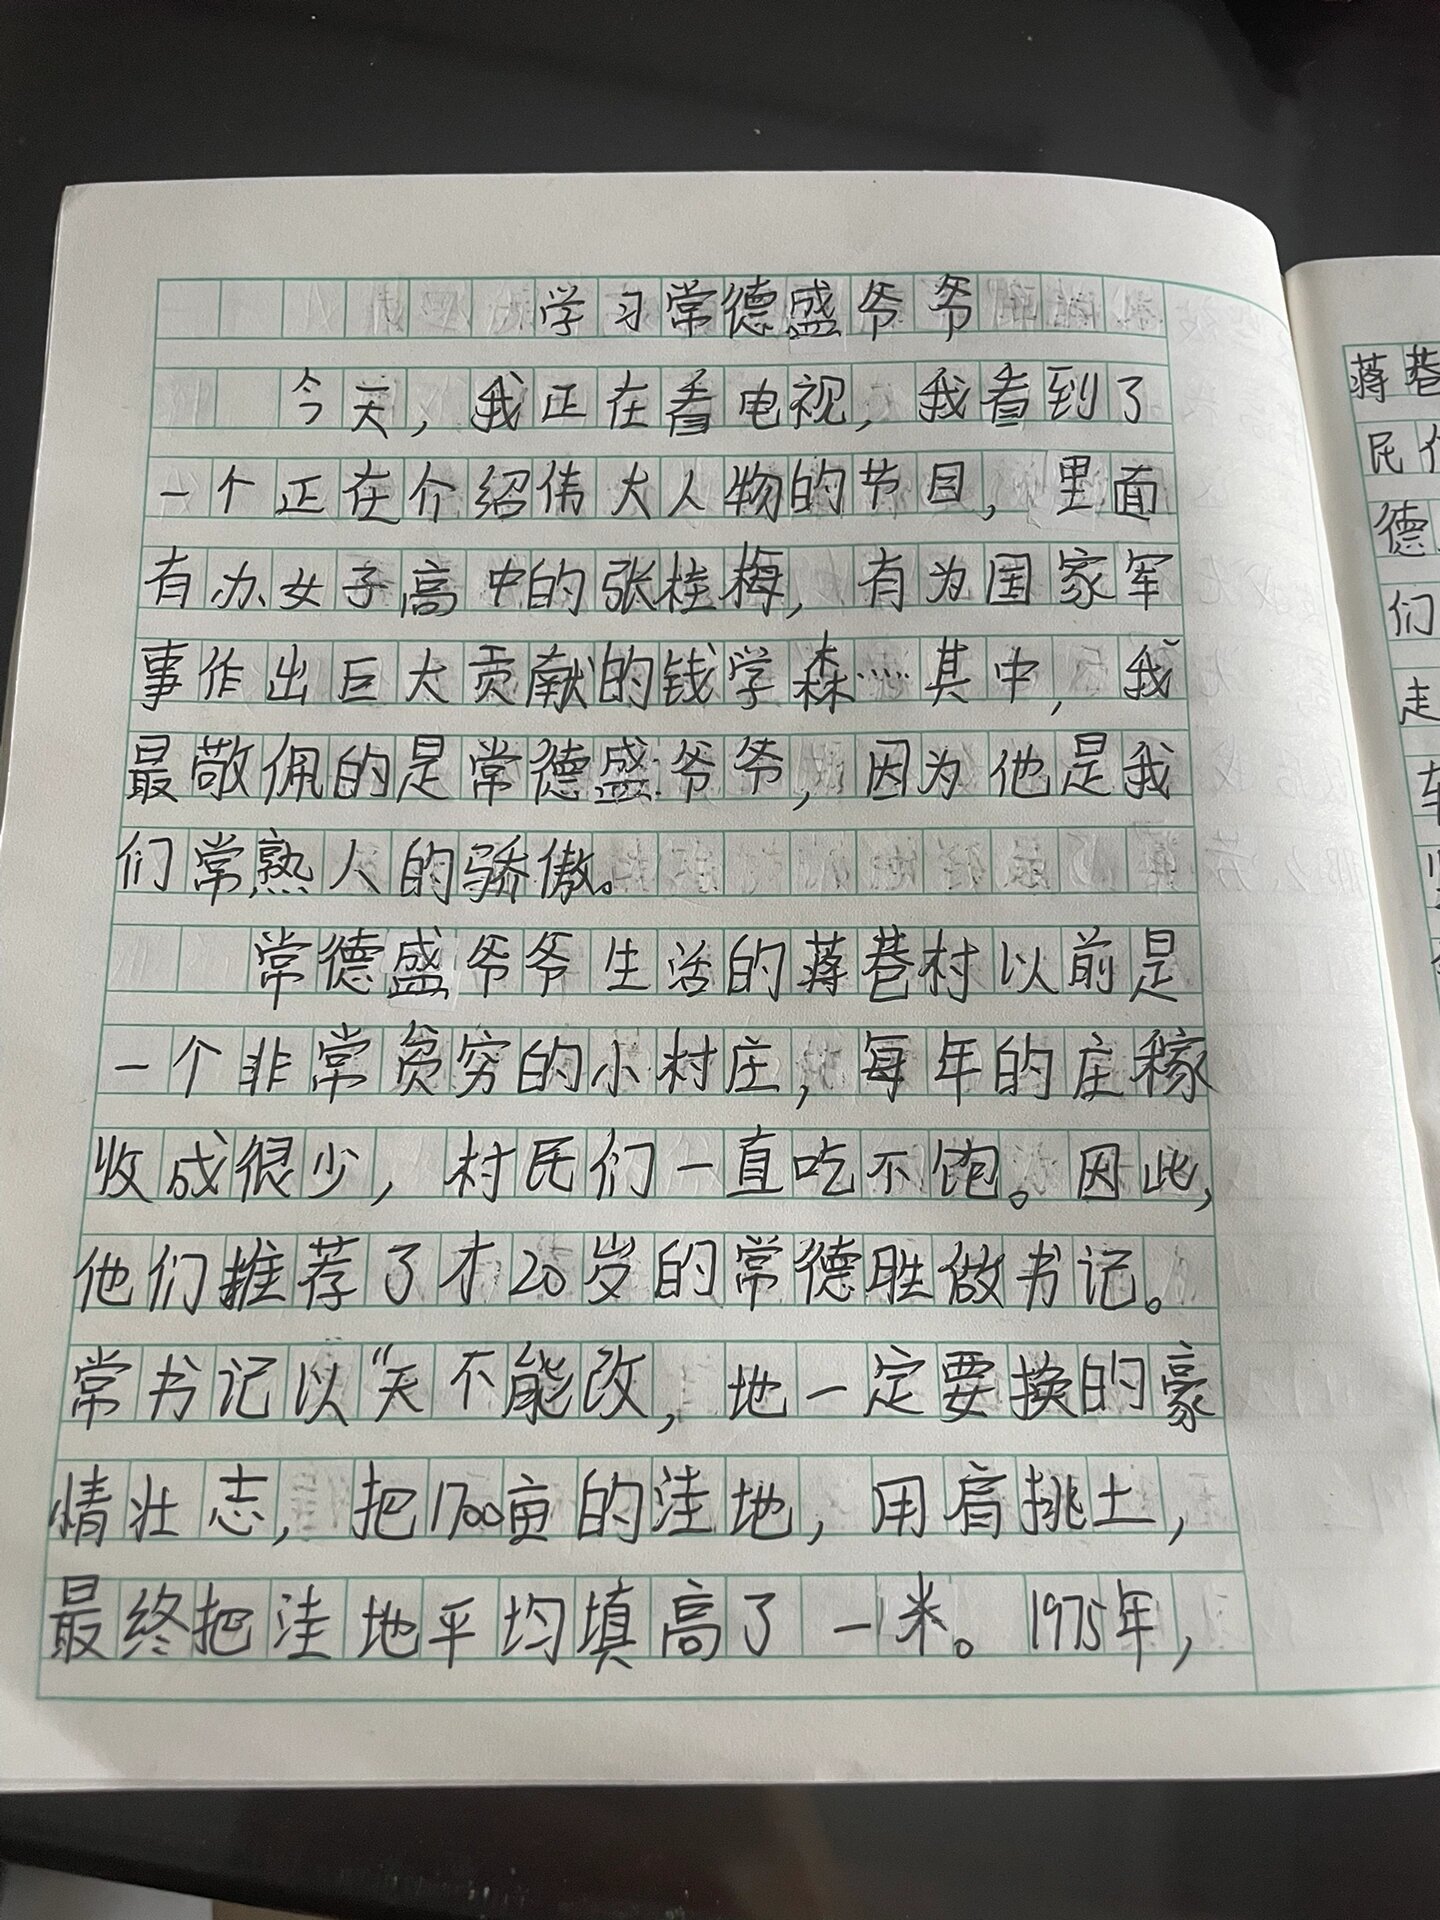 学习常德盛爷爷
今天，我正在看电视，我看到了
一个正在介绍伟大人物的节目，里面
有办女子高中的张桂梅，有为国家军
事作出巨大贡献的钱学森……其中，我
最敬佩的是常德盛爷爷，因为他是我
们常熟人的骄傲。
常德盛爷爷生活的蒋巷村以前是
一个非常贫穷的小村庄，每年的庄稼
收成很少，村民们一直吃不饱。因此，
他们推荐了才20岁的常德胜做书记。
常书记以“天不能改，地一定要换的豪
情壮志，把1700亩的洼地，用肩挑土，
最终把洼地平均填高了一米。1975年，
蒋巷
民
德
们
走